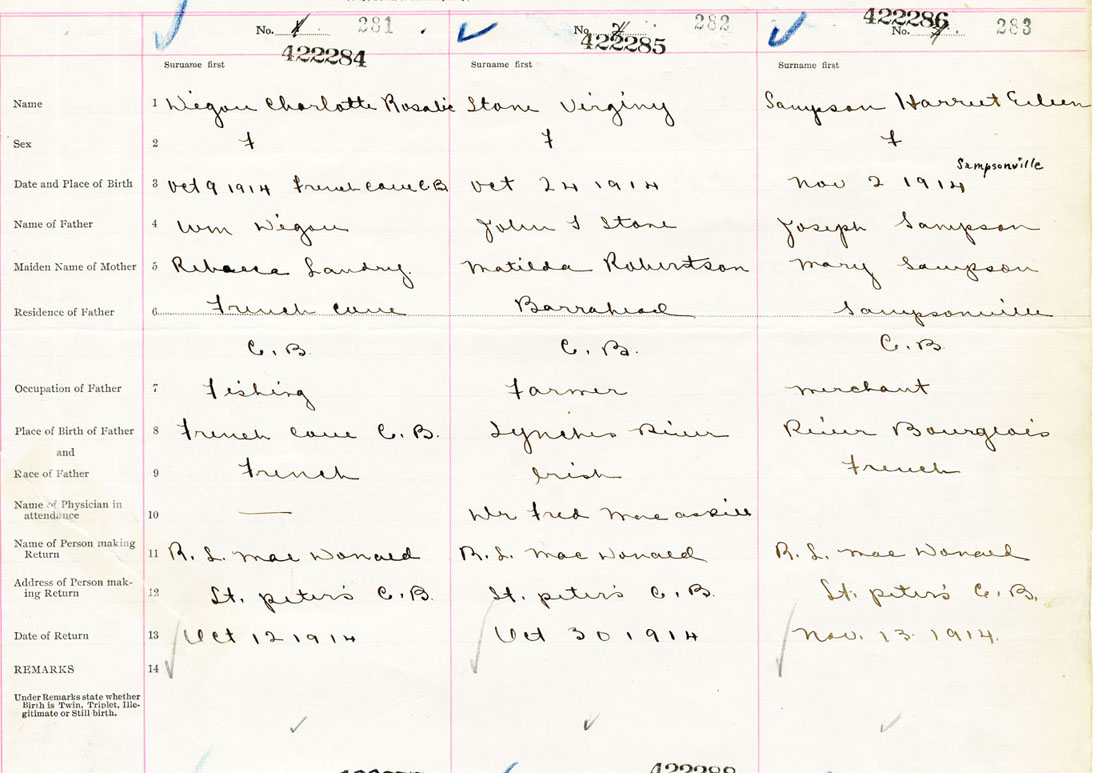 281 282 422286 283
No. 1 No. 2 No.
422284 422285
Surname first Surname first Surname first
Name 1 Digou Charlotte Rosalie Stone Virginy Sampson Harriet Eileen
Sex 2 F F F
Sampsonville
Date and Place of Birth 3 Oct 9 1914 French Cove C B Oct 24 1914 Nov 2 1914
Name of Father 4 Wm Digou John S Stone Joseph Sampson
Maiden Name of Mother 5 Rebecca Landry. Matilda Robertson Mary Sampson
Residence of Father 6 French Cove Barrahead Sampsonville
C. B. C. B. C. B.
Occupation of Father 7 Fishing Farmer Merchant
Place of Birth of Father 8 French Cove C. B. Lynches River River Bourgeois
and
Race of Father 9 French Irish French
Name of Physician in
attendance 10 Dr Fred Macaskill
Name of Person making
Return 11 R. L. MacDonald R. L. MacDonald R. L. MacDonald
Address of Person mak-
ing Return 12 St. Peter's C. B. St. Peter's C. B. St. Peter's C. B.
Date of Return 13 Oct 12 1914 Oct 30 1914 Nov. 13. 1914.
REMARKS 14
Under Remarks state whether
Birth is Twin, Triplet, Ille-
gitimate or Still birth.